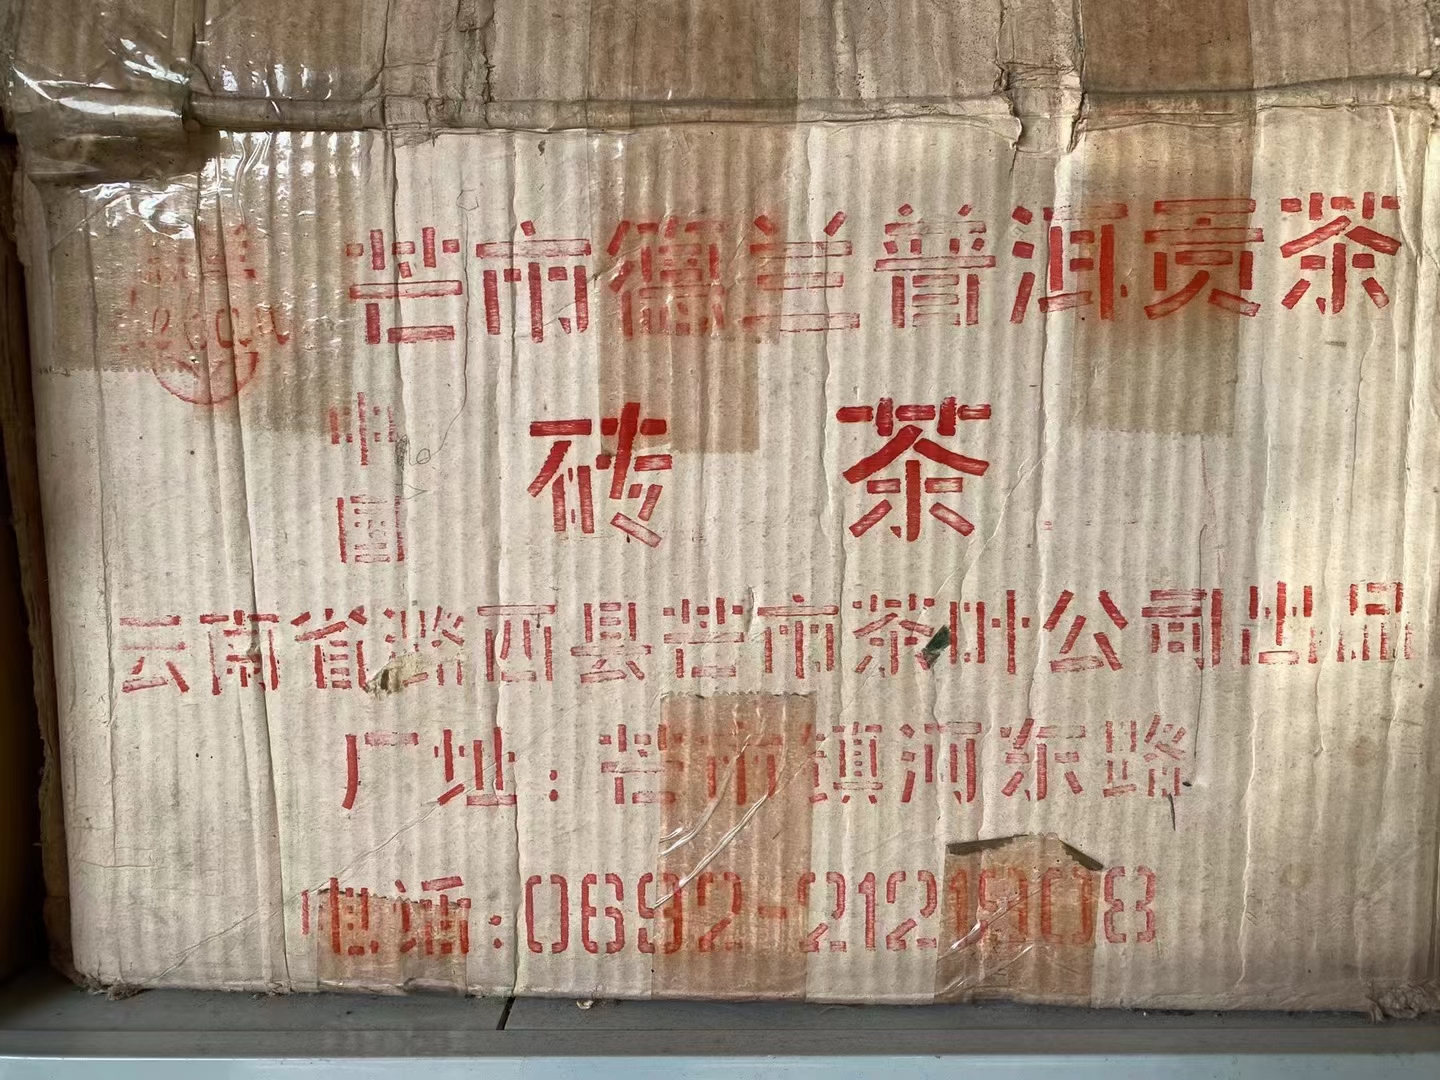 芒市德兰普洱贡茶
中国
砖茶
云南省潞西县芒市茶叶公司出品
厂址:芒市镇河东路
电话:0692-2121908